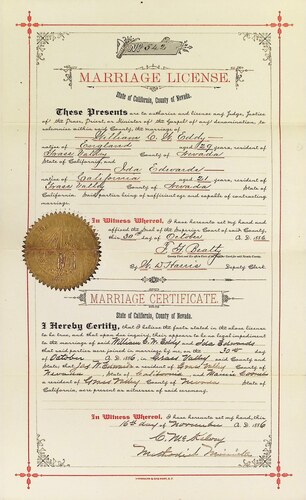 No 542
MARRIAGE LICENSE.
State of California, County of Nevada.
These Presents are to authorize and license any Judge, Justice
of the Peace, Priest, or Minister of the Gospel of any denomination, to
solemnize within said County, the marriage of
William C. W. Eddy
native of England aged 29 years, resident of
Grass Valley County of Nevada
State of California, and
Ida Edwards
native of California aged 21 years, resident of
Grass Valley County of Nevada State of
California. Said parties being of sufficient age and capable of contracting
marriage.
In Witness Whereof, I have hereunto set my hand and
affixed the Seal of the Superior Court of said County,
this 30th day of October A. D. 1886
F. G. Beatty
By W. D. Harris Deputy Clerk
MARRIAGE CERTIFICATE.
State of California, County of Nevada.
I Hereby Certify, that I believe the facts stated in the above license
to be true, and that upon due inquiry, there appears to be no legal impediment
to the marriage of said William C. W. Eddy and Ida Edwards
that said parties were joined in marriage by me, on the 30th day
of October A. D. 1886, in Grass Valley, County of Nevada,
State; that Jas. W. Edwards a resident of Grass Valley County of
Nevada, State of California, and
a resident of Grass Valley County of Nevada State of
California, were present as witnesses of said ceremony.
In Witness Whereof, I have hereunto set my hand, this
16th day of November A. D. 1886
Methodist Minister